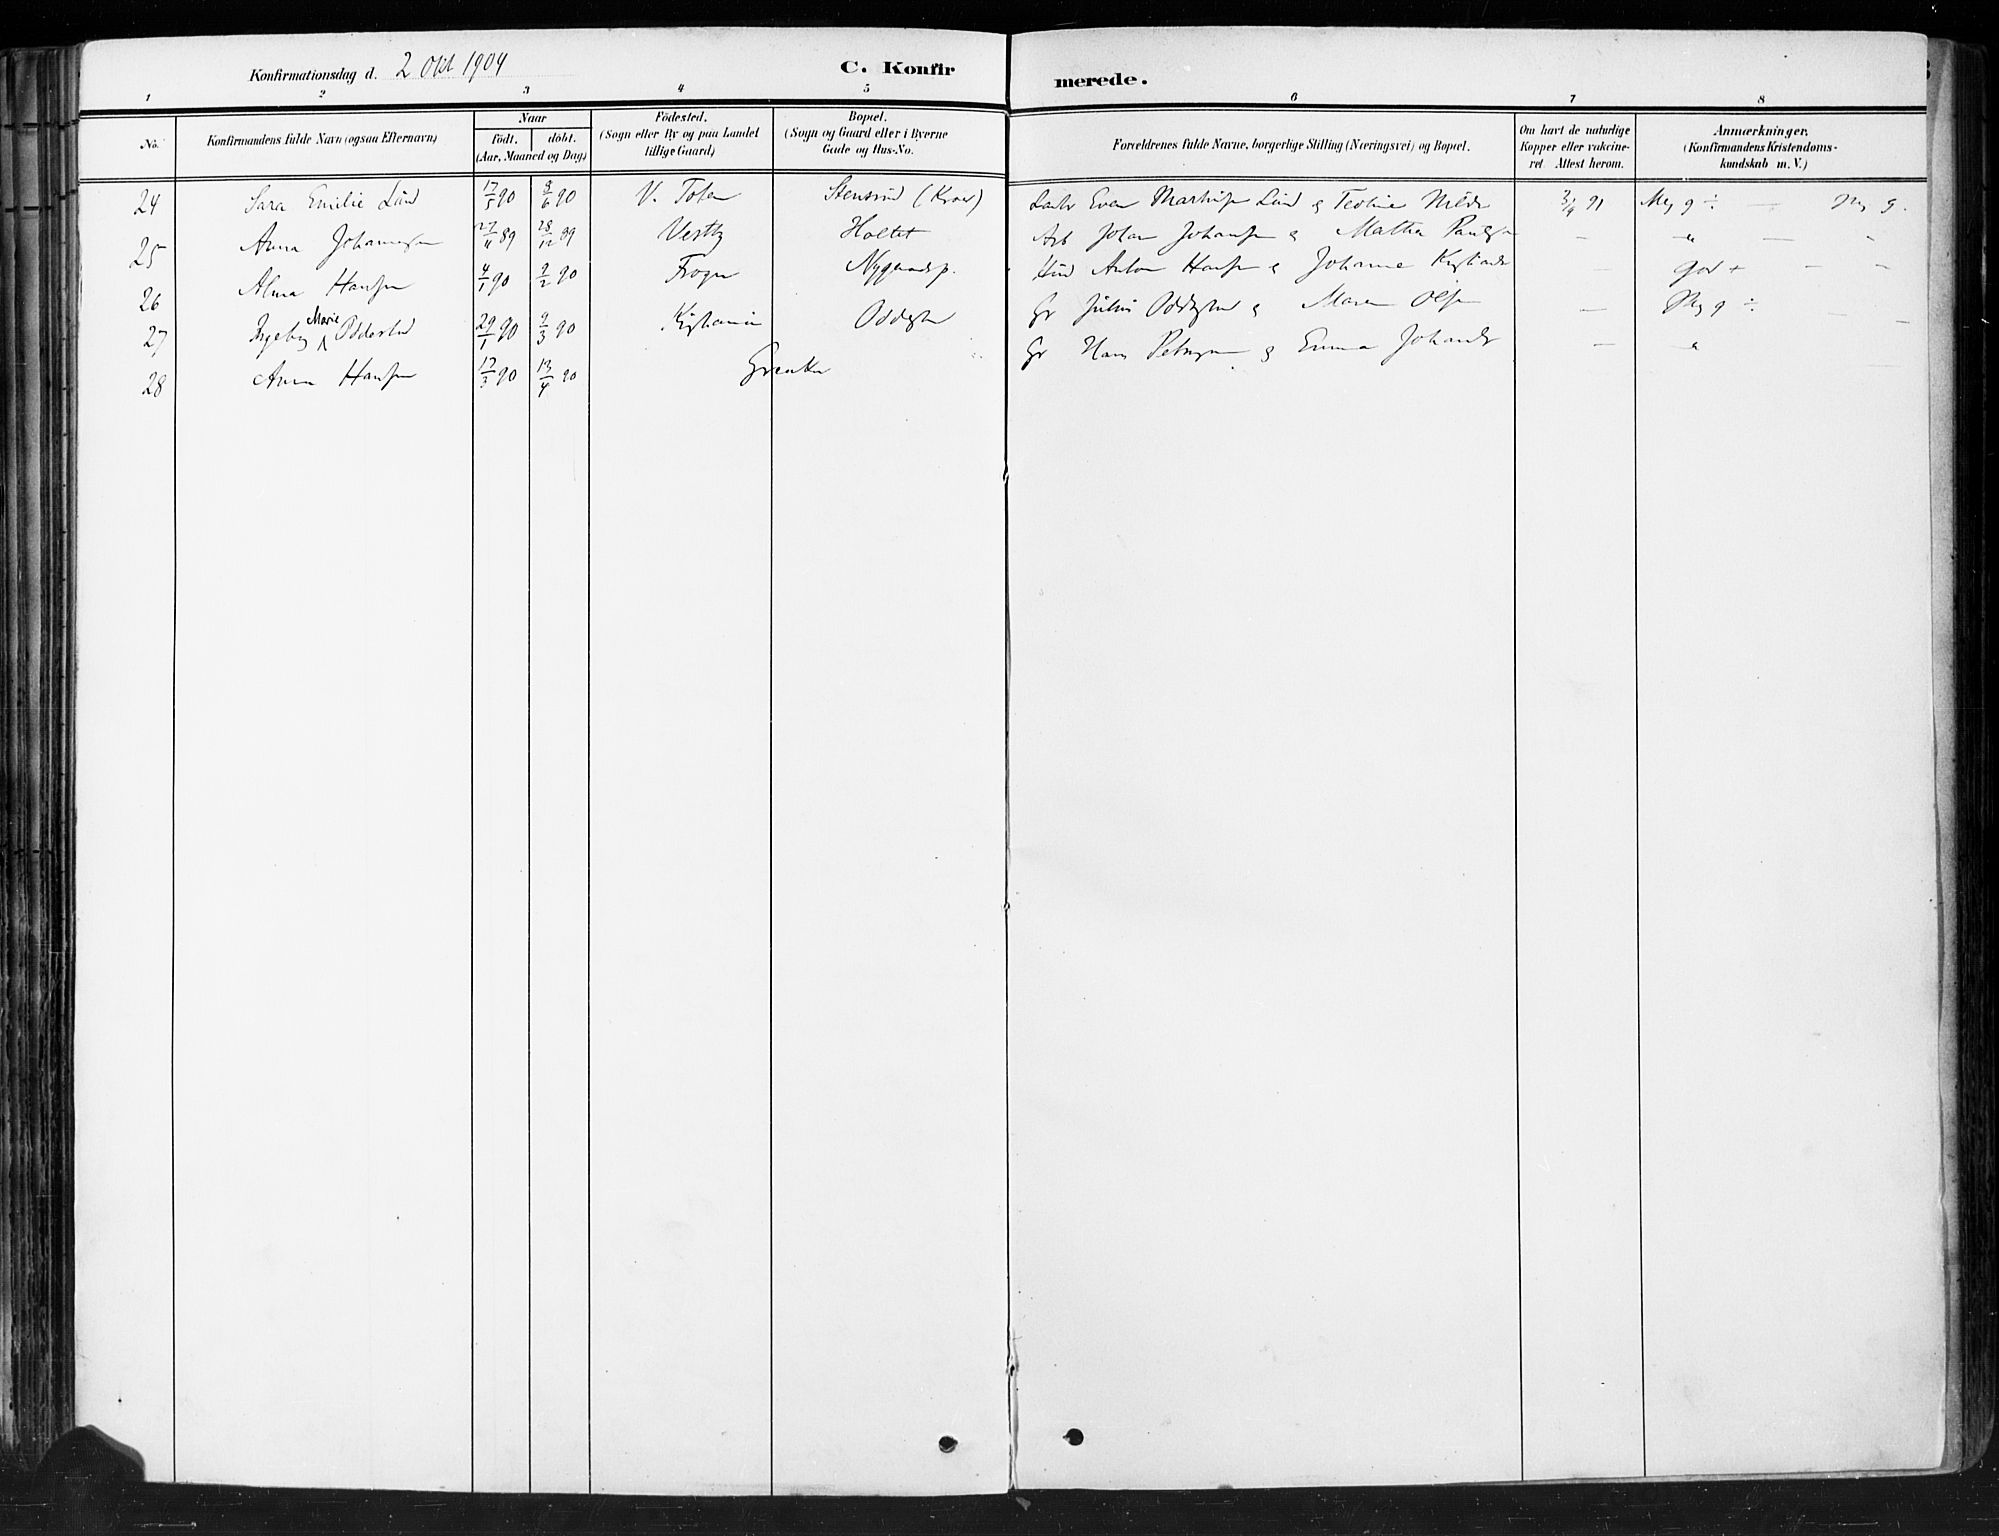 Konfirmationsdag d. 2 Okt 1904
C. Konfir
merede.
1 2 3 4 5 6 7 8
No.
Konfirmandens fulde Navn (ogsaa Efternavn)
Naar
födt. döbt.
(Aar, Maaned og Dag)
Födested.
(Sogn eller By og paa Landet
tillige Gaard)
Bopæl.
(Sogn og Gaard eller i Byerne
Gade og Hus-No.
Forældrenes fulde Navne, borgerlige Stilling (Næringsvei) og Bopæl.
Om havt de naturlige
Kopper eller vakcine-
ret Attest herom.
Anmærkninger.
(Konfirmandens Kristendoms-
kundskab m. V.)
24 Sara Emilie Lund 17/5 90 8/6 90 V. Toten Stensrud (Kroer) Even Lund g Teoline 3/9 91 Meg g ÷ — Meg g.
25 Anna Johannesen 27/11 89 28/12 89 Vestby Holtet Arb Johan Johansen g Mathea — " — "
26 Alma Hansen 4/1 90 9/2 90 Frogn Nygaardsp. Anton Hansen g Johanne — god + — "
27 Ingeborg Marie Oddestad 29/1 90 9/3 90 Kristiania Oddestad Gr Julius Oddestad g Maren Olsen — Meg g ÷ — —
28 Anna Hansen 17/3 90 13/4 90 Gr Hans Petersen g Emma — "